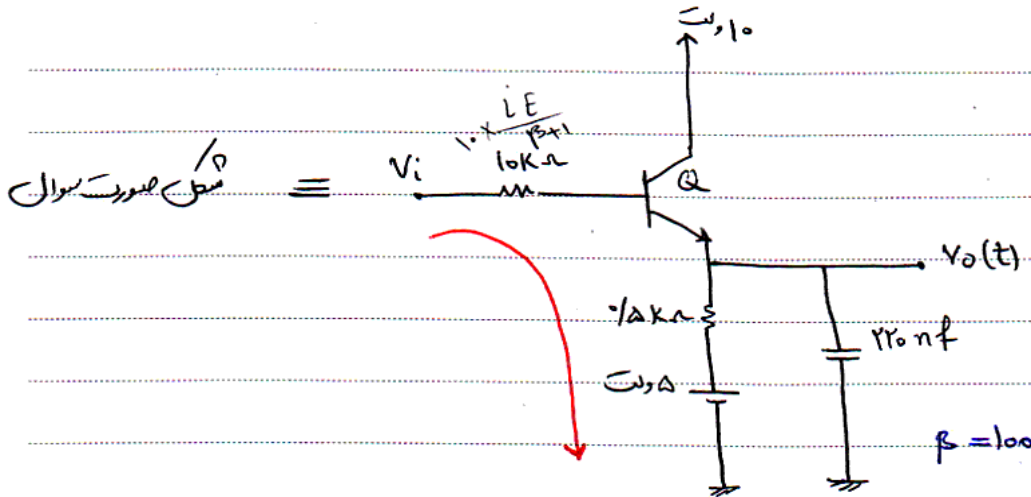 ولت ۱۰
۱۰ × iE / β+1
شکل صورت سوال ≡ Vi 10KΩ Q
Vo(t)
۰/۵ KΩ
۲۲۰ nf
ولت ۵
β = 100